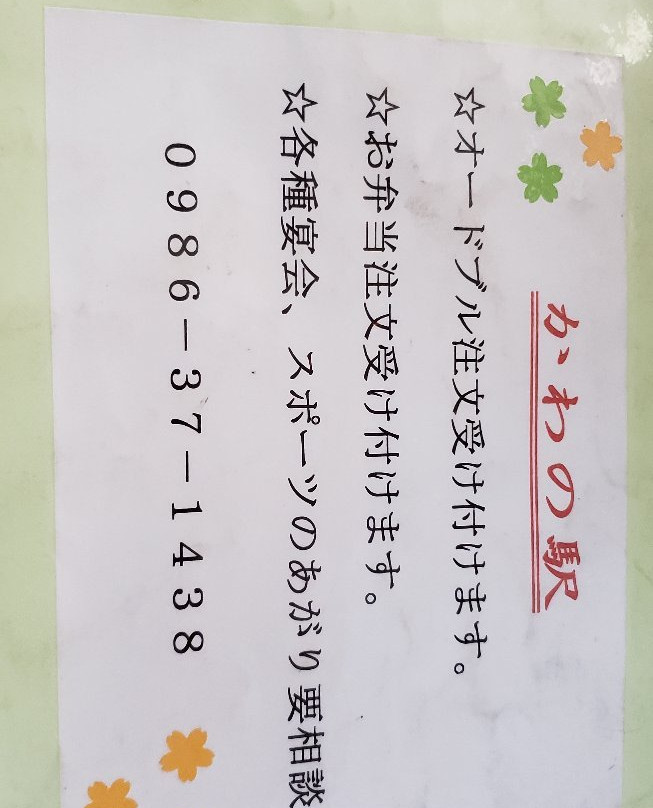 かわの駅
☆オードブル注文受け付けます。
☆お弁当注文受け付けます。
☆各種宴会、スポーツのあがり要相談
0986－37－1438